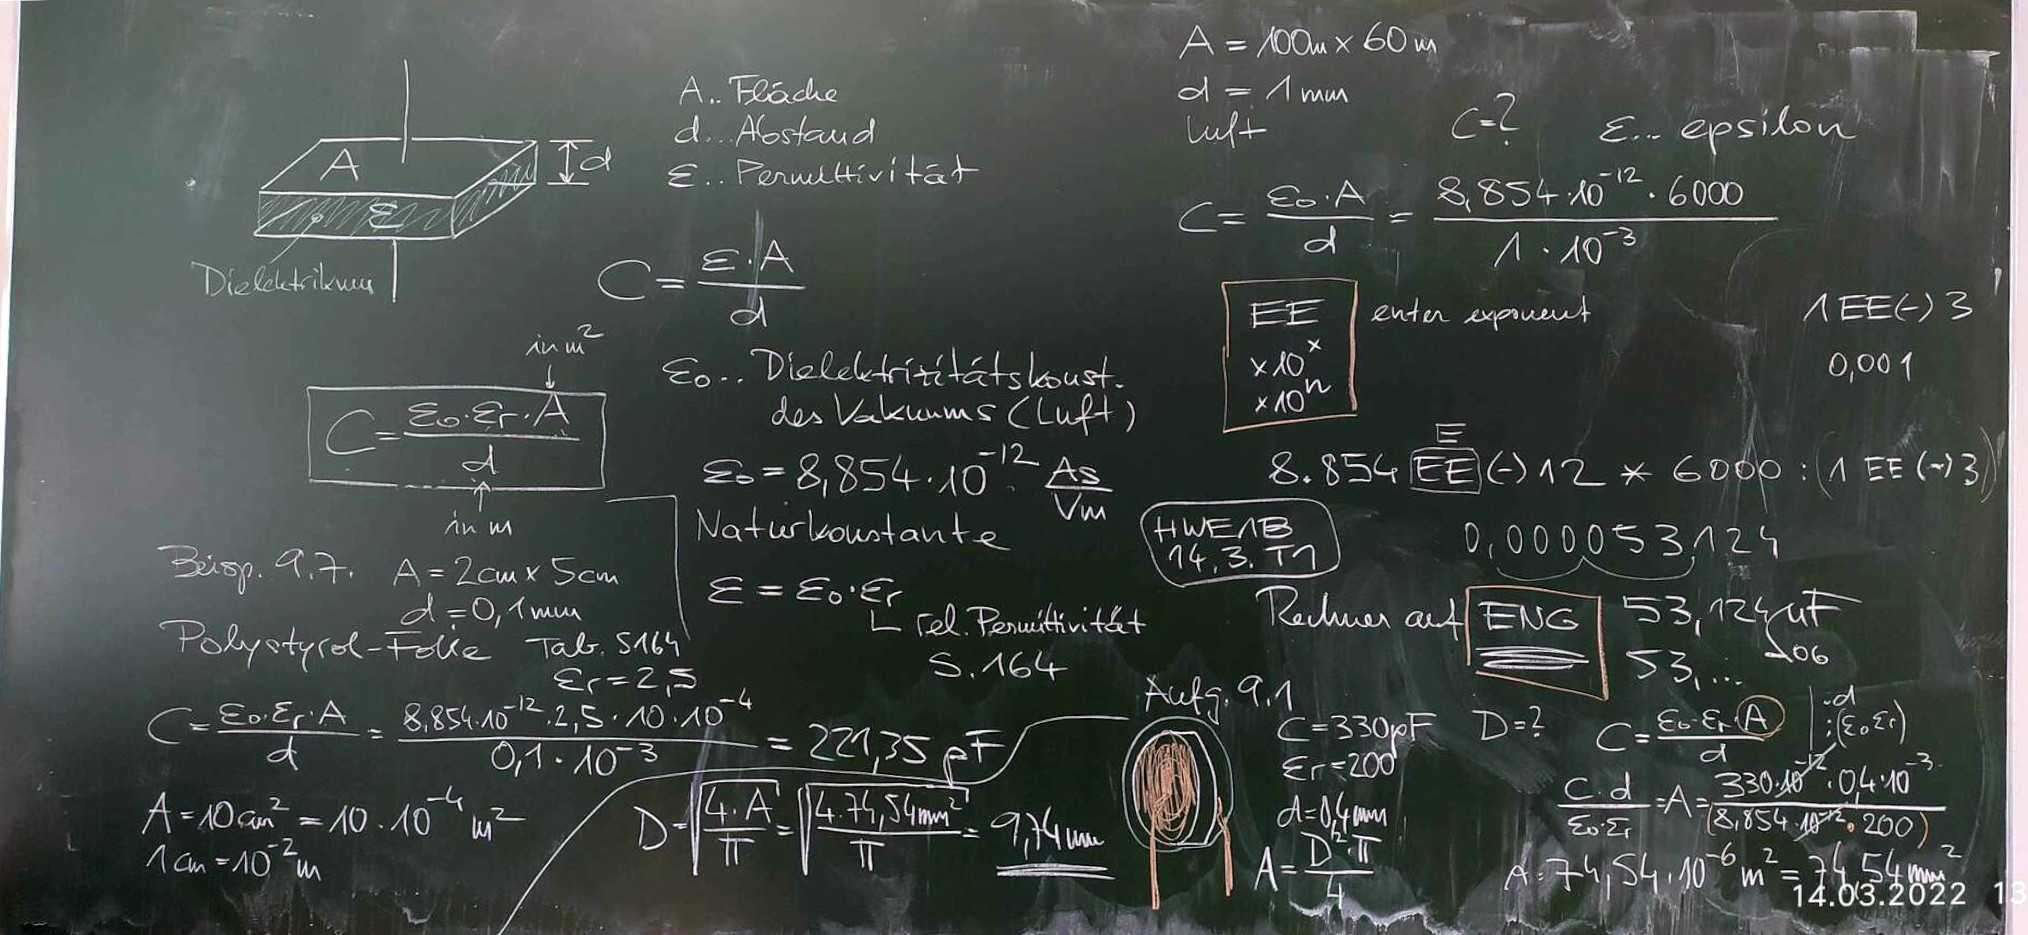 A
d
ε
Dielektrikum
A.. Fläche
d... Abstand
ε.. Permittivität
C = ε·A / d
in m²
C = ε₀·εr·A / d
in m
ε₀.. Dielektrizitätskonst.
des Vakuums (Luft)
ε₀ = 8,854·10⁻¹² As/Vm
Naturkonstante
ε = ε₀·εr
rel. Permittivität
S.164
Beisp. 9.7. A = 2cm x 5cm
d = 0,1mm
Polystyrol-Folie Tab. S164
εr = 2,5
C = ε₀·εr·A / d = 8,854·10⁻¹²·2,5·10·10⁻⁴ / 0,1·10⁻³ = 221,35 pF
A = 10cm² = 10·10⁻⁴ m²
1cm = 10⁻² m
A = 100m x 60m
d = 1mm
Luft
C=? ε... epsilon
C = ε₀·A / d = 8,854·10⁻¹²·6000 / 1·10⁻³
EE enter exponent
x10ˣ
x10ⁿ
1 EE(-)3
0,001
E
8.854 EE (-)12 * 6000 : (1 EE (-)3)
0,000053124
HWE1B
14.3. T1
Rechner auf ENG 53,124µF
53,... -06
Aufg. 9.1
C = 330pF D=?
εr = 200
d = 0,4mm
A = D²·π / 4
C = ε₀·εr·A / d | ·d
:(ε₀εr)
C·d / ε₀·εr = A = 330·10⁻¹²·0,4·10⁻³ / (8,854·10⁻¹²·200)
A = 74,54·10⁻⁶ m² = 74,54mm²
D = √(4·A / π) = √(4·74,54mm² / π) = 9,74mm
14.03.2022 13